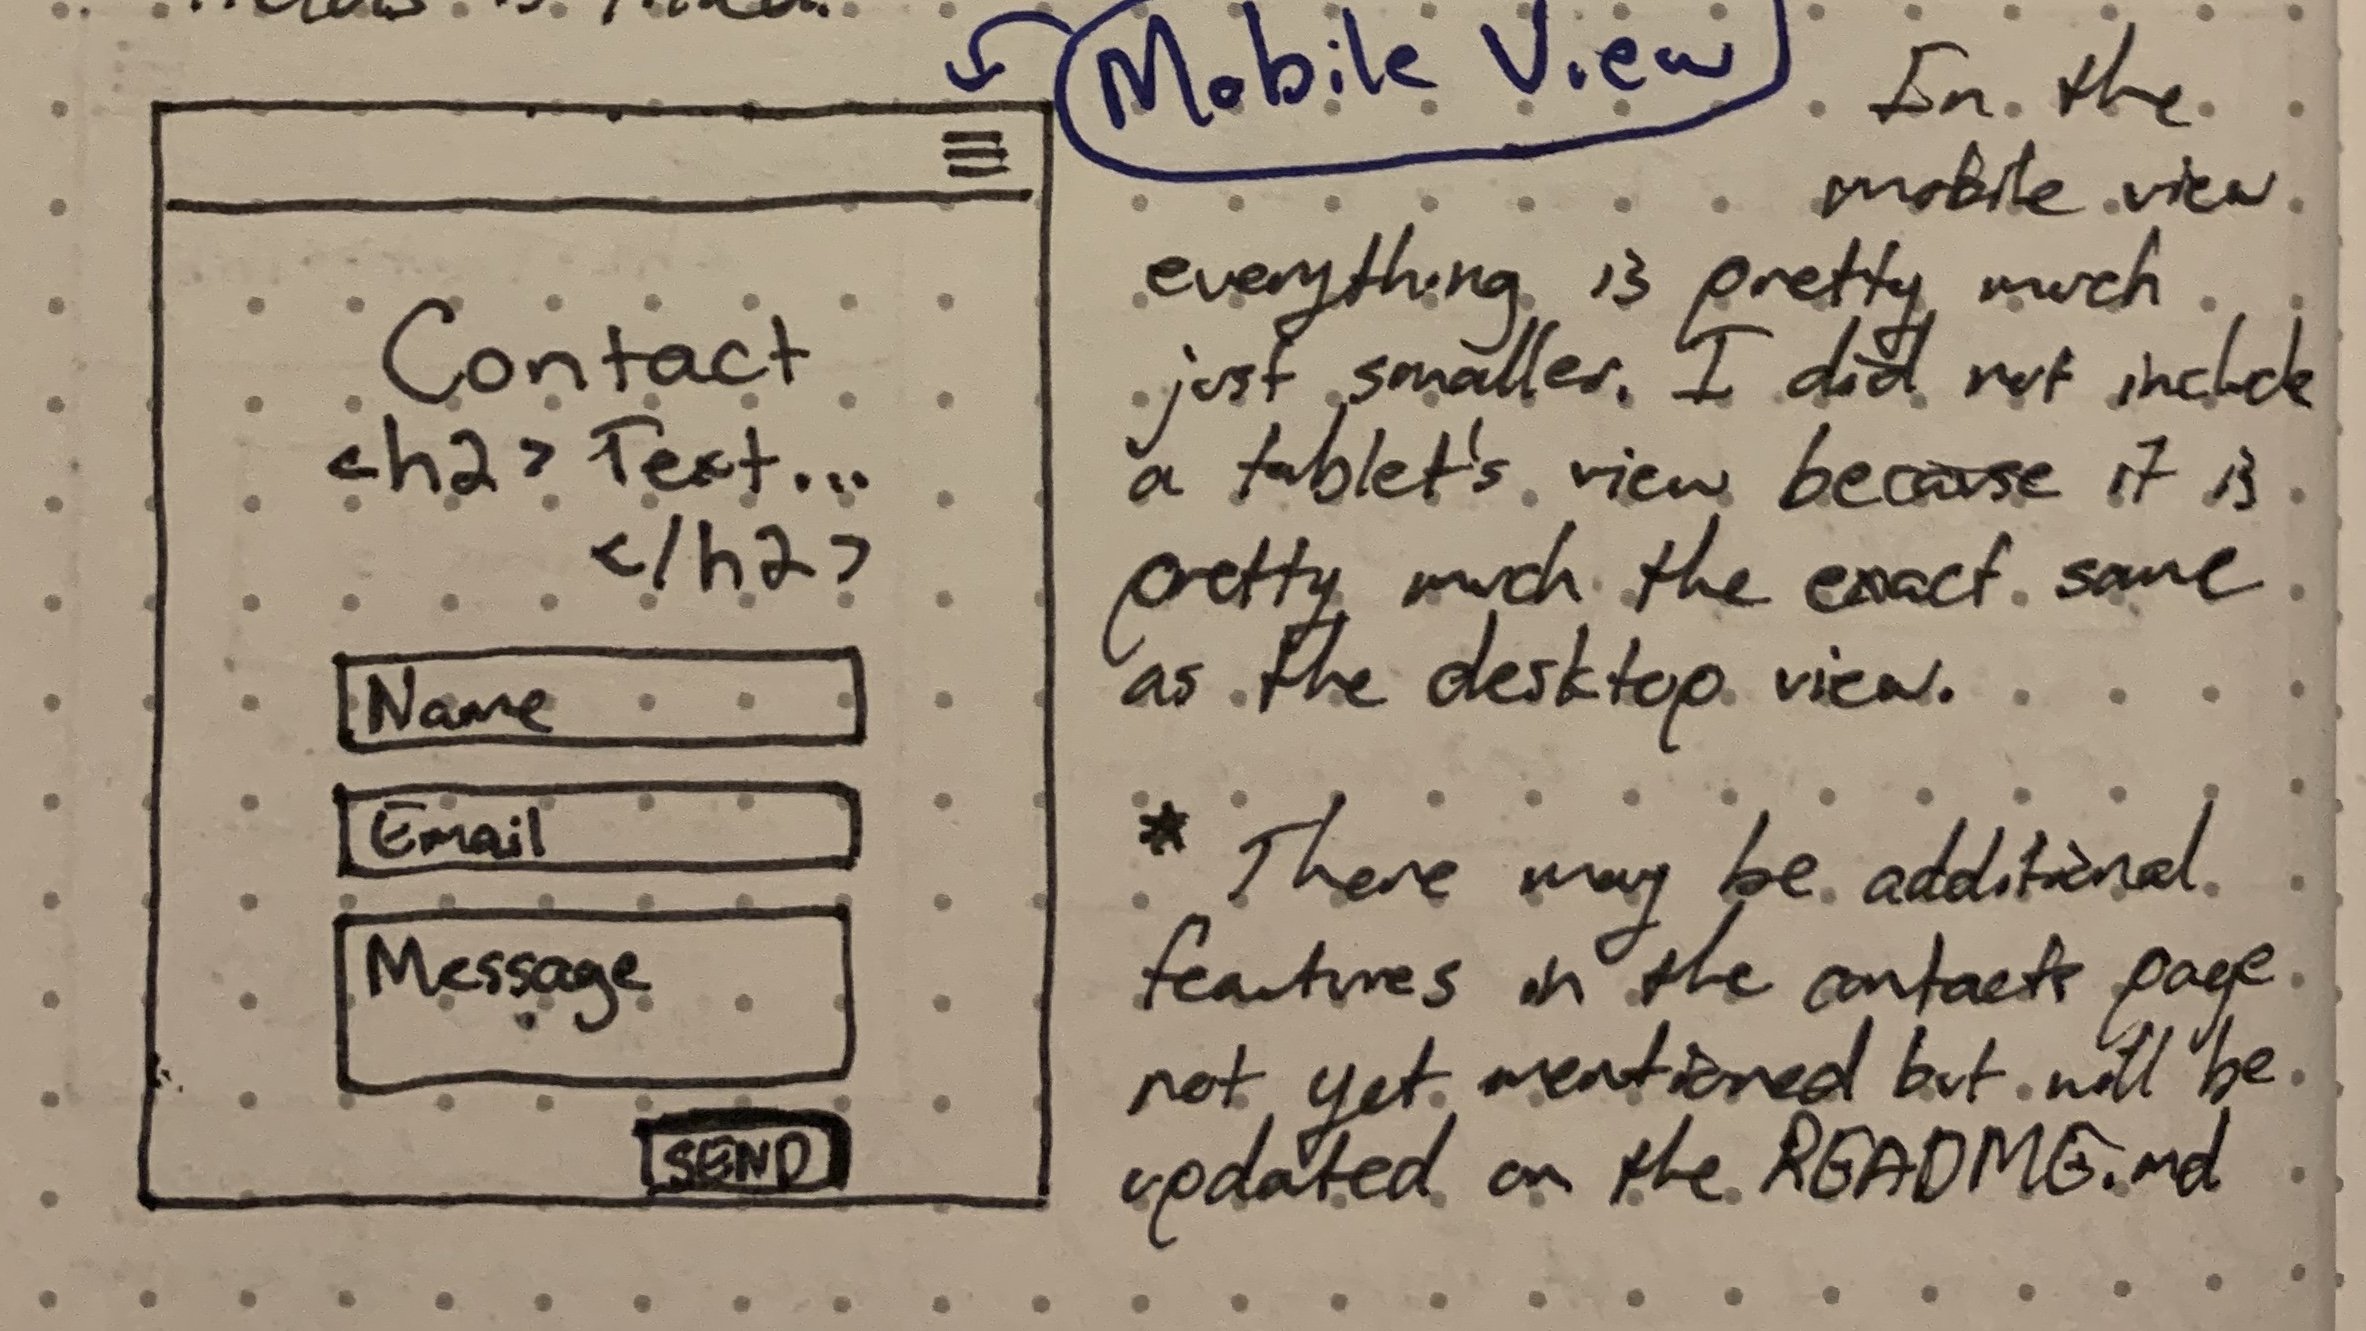 is
Mobile View
Contact
<h2> Text...
</h2>
Name
Email
Message
SEND
In the
mobile view
everything is pretty much
just smaller. I did not include
a tablet's view because it is
pretty much the exact same
as the desktop view.
* There may be additional
features in the contacts page
not yet mentioned but will be
updated on the README.md